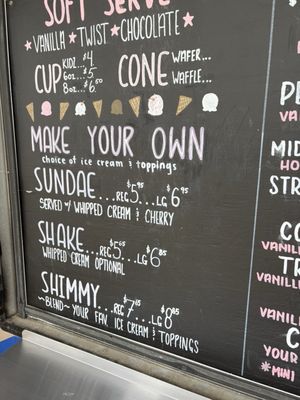 SOFT SERVE
VANILLA ★ TWIST ★ CHOCOLATE
CUP KIDZ...$4
6oz...$5
8oz...$6
CONE WAFER...
WAFFLE...
MAKE YOUR OWN
choice of ice cream & toppings
SUNDAE...REG $5.95...LG $6.95
SERVED W/ WHIPPED CREAM & CHERRY
SHAKE...REG $5.65...LG $6.85
WHIPPED CREAM OPTIONAL
SHIMMY...REG $7.65...LG $8.85
~BLEND~ YOUR FAV. ICE CREAM & TOPPINGS
PE
MID
HO
STR
CO
VANILLA
TR
VANILLA
VANILLA
YOUR
*MINI